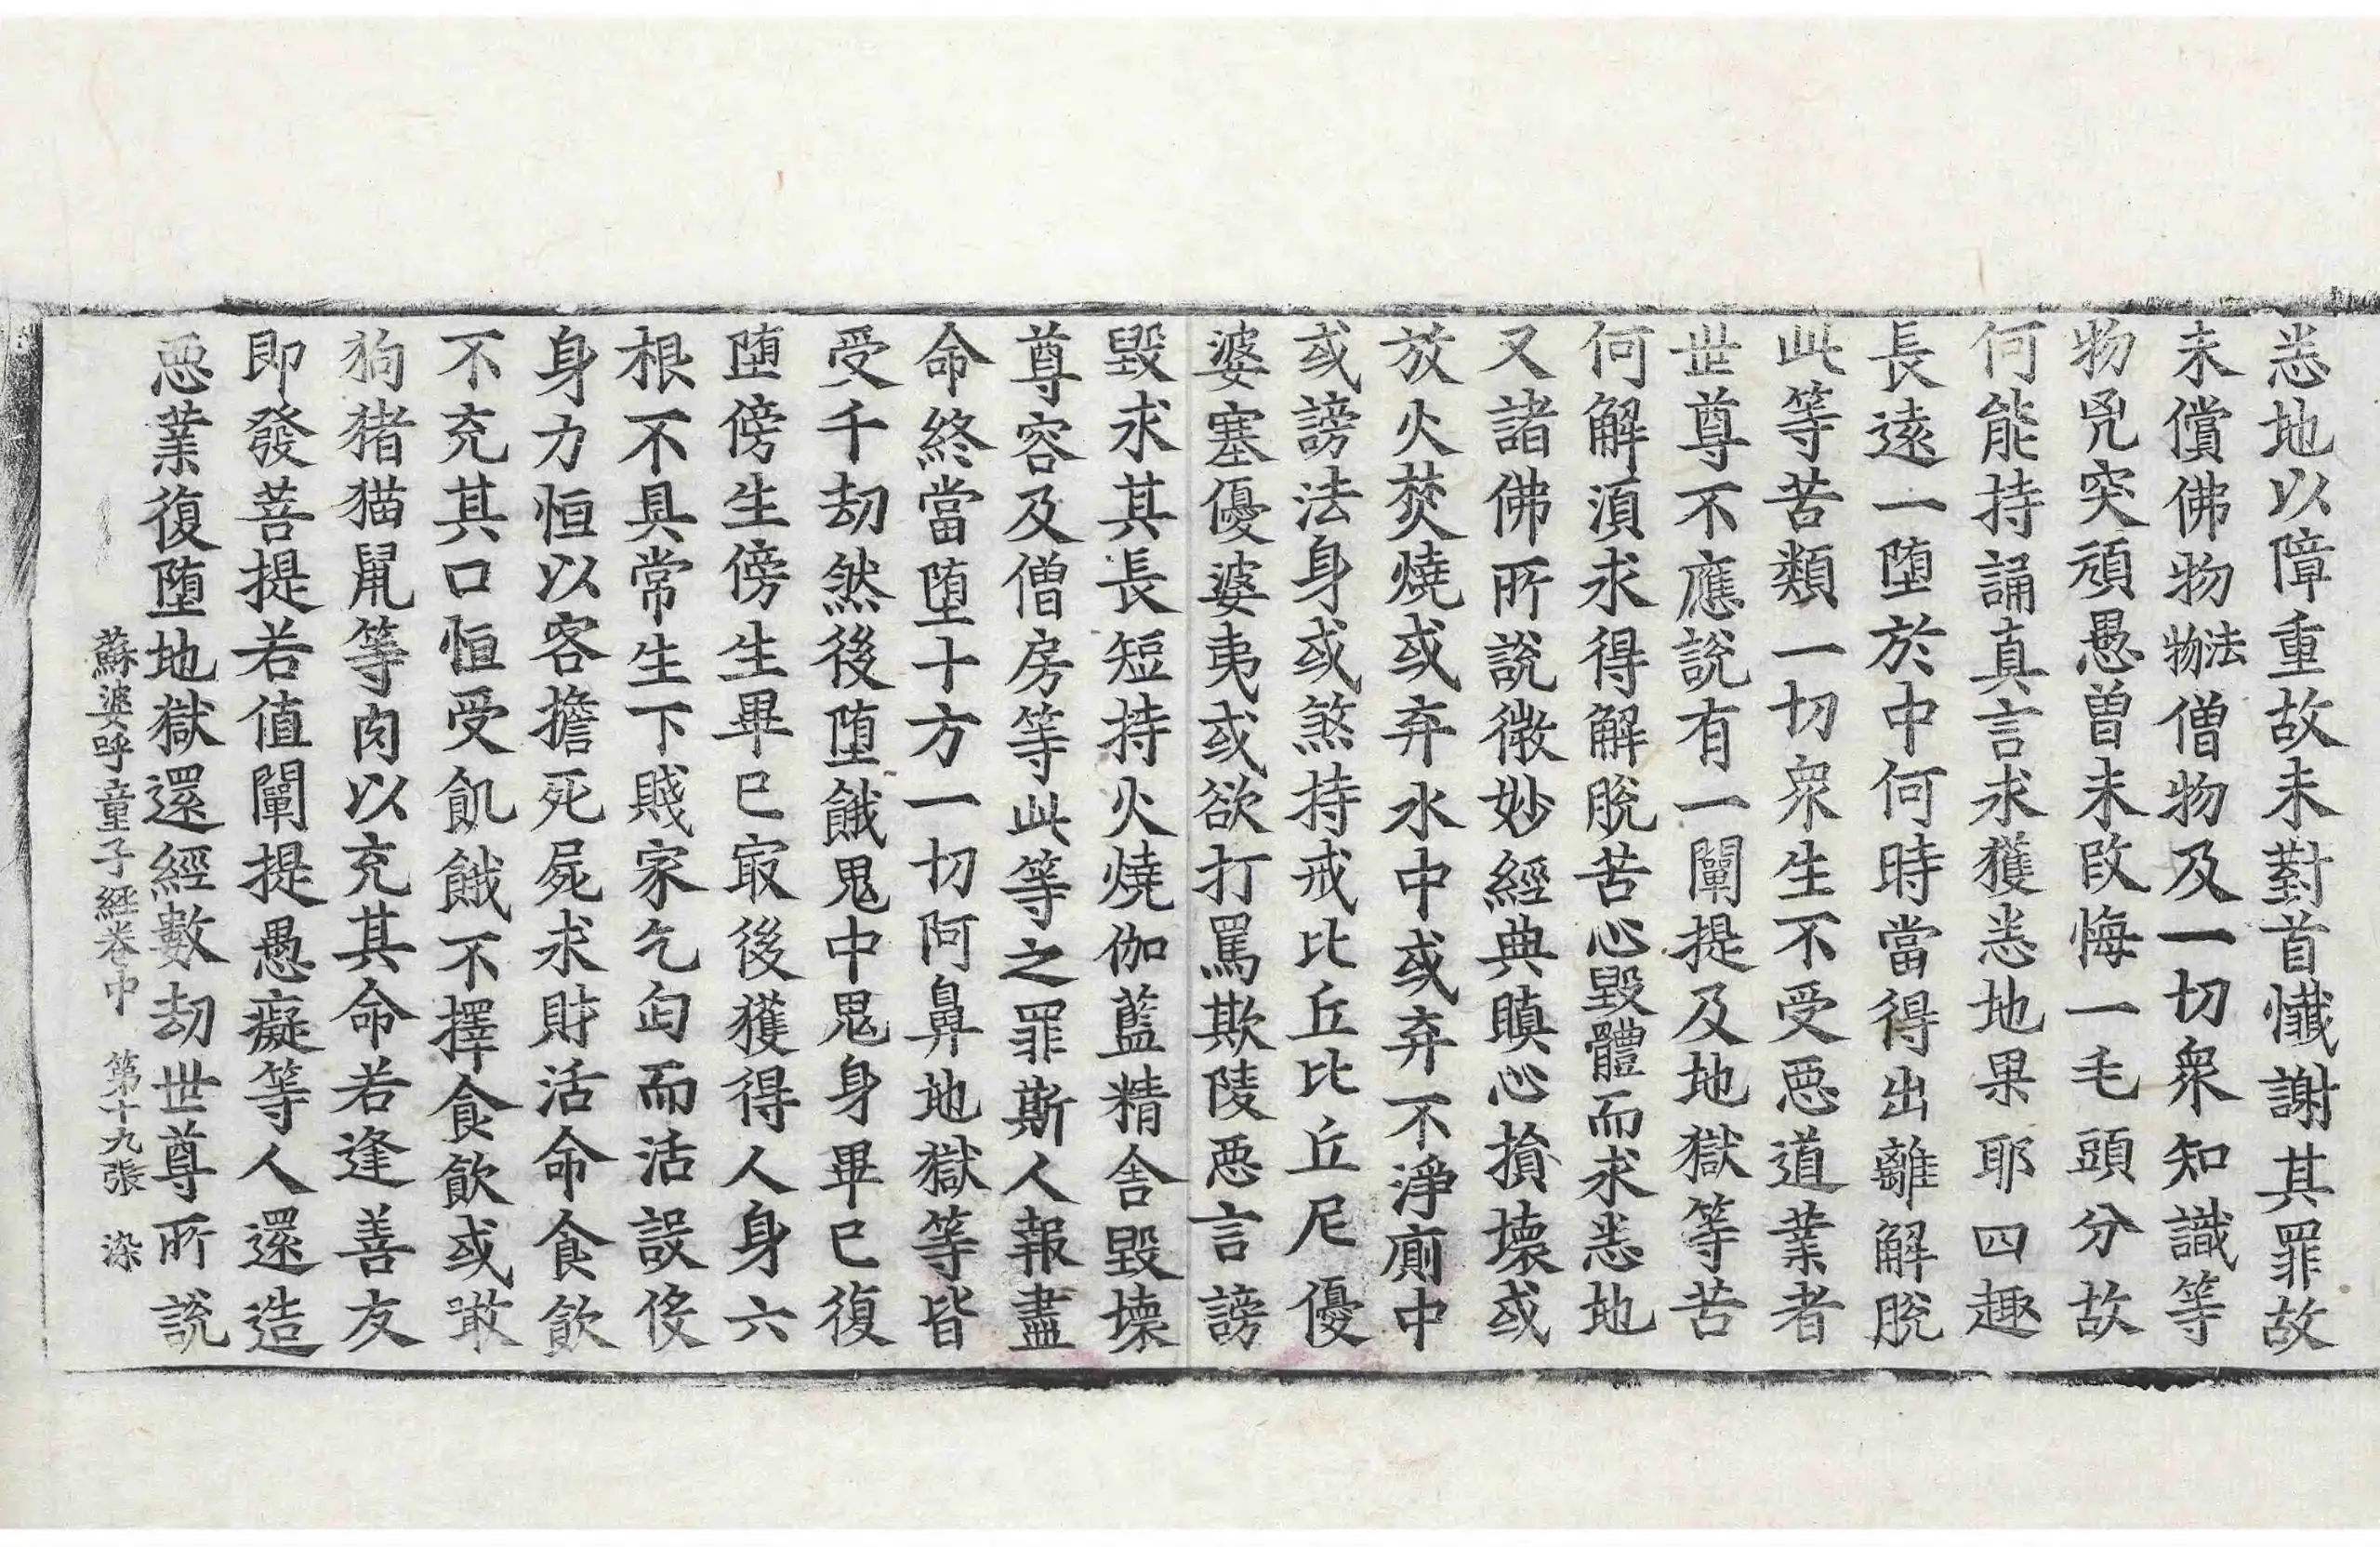 悉地以障重故未對首懺謝其罪故
未償佛物法物僧物及一切衆知識等
物兇突頑愚曾未改悔一毛頭分故
何能持誦真言求獲悉地果耶四趣
長遠一墮於中何時當得出離解脫
此等苦類一切衆生不受惡道業者
世尊不應說有一闡提及地獄等苦
何解湏求得解脫苦心毀體而求悉地
又諸佛所說微妙經典瞋心損壞或
放火焚燒或弃水中或弃不淨廁中
或謗法身或煞持戒比丘比丘尼優
婆塞優婆夷或欲打罵欺陵惡言謗
毀求其長短持火燒伽藍精舍毀壞
尊容及僧房等此等之罪斯人報盡
命終當墮十方一切阿鼻地獄等皆
受千劫然後墮餓鬼中鬼身畢已復
墮傍生傍生畢已冣後獲得人身六
根不具常生下賤家乞匃而活設侫
身力恒以客擔死屍求財活命食飲
不充其口恒受飢餓不擇食飲或噉
狗猪猫鼠等肉以充其命若逢善友
即發菩提若值闡提愚癡等人還造
惡業復墮地獄還經數劫世尊所說
蘇婆呼童子經卷中 第十九張 染